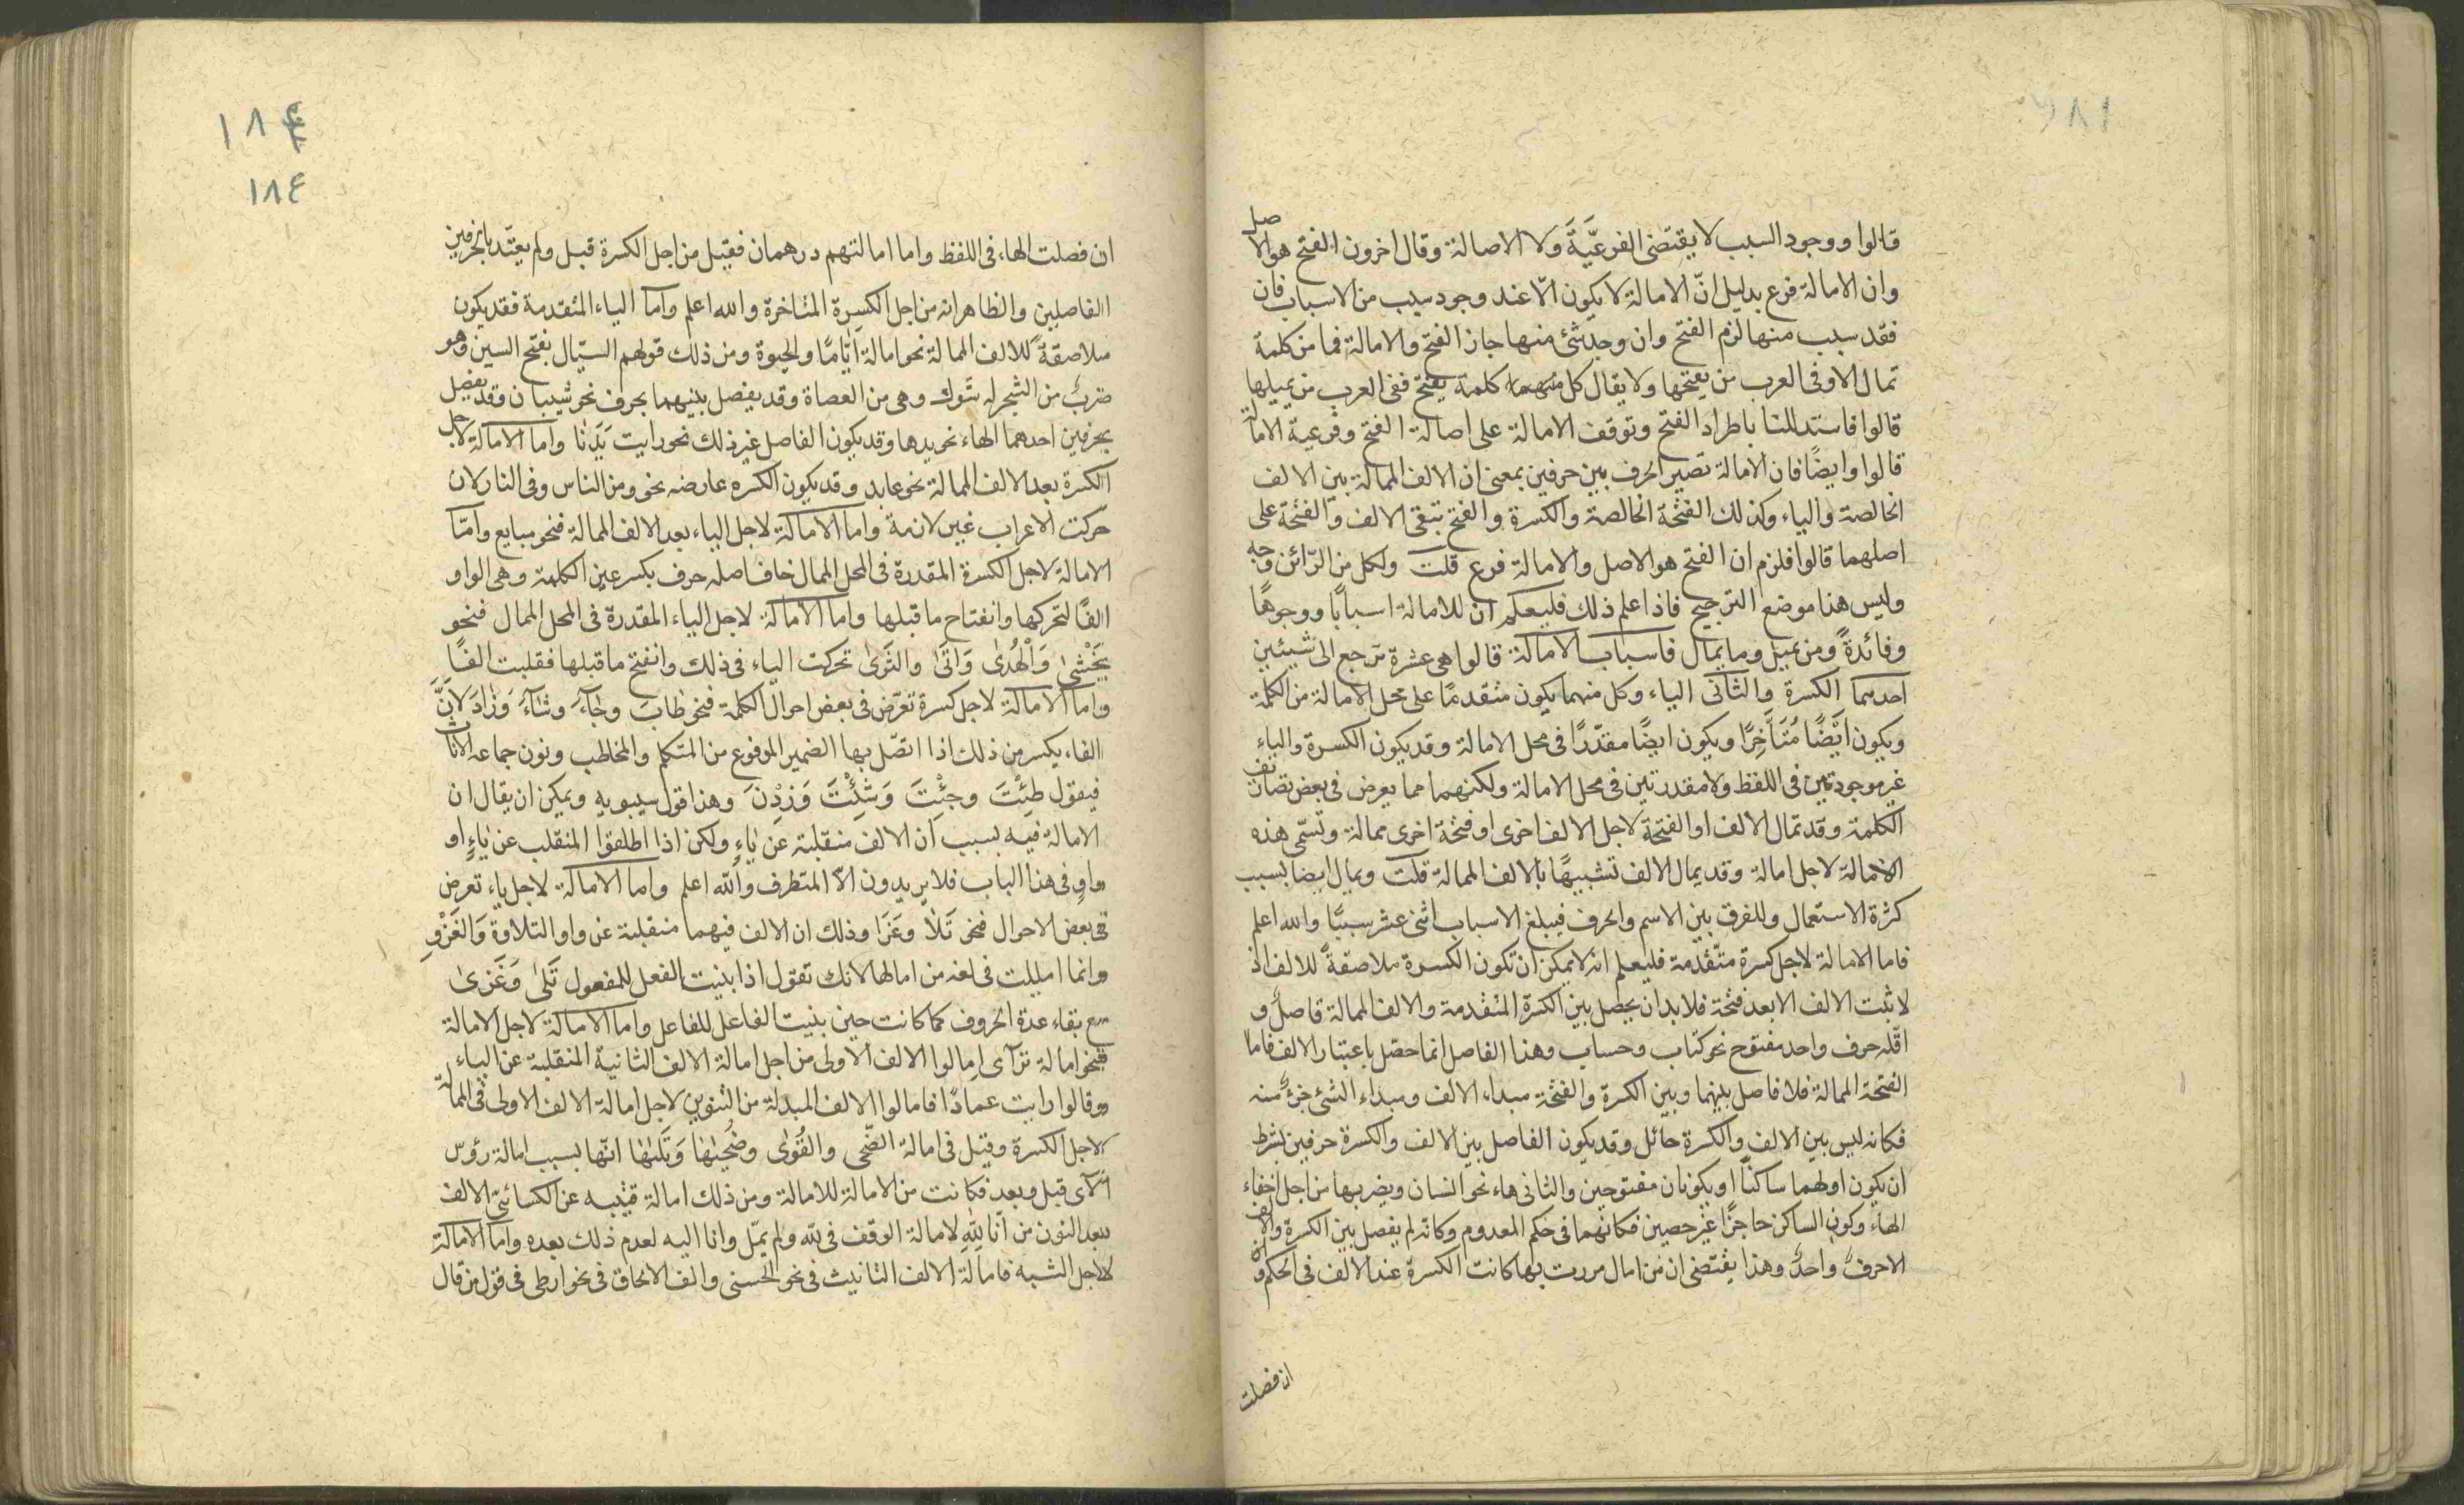 قالوا ووجود السبب لا يقتضى الفرعيّيةَ ولا الاصالة وقال اخرون الفتح هو الاصل
وان الامالة فرع بدليل انّ الامالة لا يكون الّا عند وجود سبب من الاسباب فان
فقد سبب منها لزم الفتح وان وجد شئ منها جاز الفتح والامالة فما من كلمة
تمال الا وفى العرب من يفتحها ولا يقال كل كلمة يفتح ففى العرب من يميلها
قالوا فاستدللنا باطراد الفتح وتوقف الامالة على اصالة الفتح وفرعية الامالة
قالوا وايضًا فان الامالة تصير الحرف بين حرفين بمعنى ان الالف الممالة بين الالف
الخالصة والياء وكذلك الفتحة الخالصة والكسرة والفتح تبقى الالف والفتحة على
اصلهما قالوا فلزم ان الفتح هو الاصل والامالة فرع قلت ولكل من الرّائن وجه
وليس هذا موضع الترجيح فاذا علم ذلك فليعلم ان للامالة اسبابًا ووجوهًا
وفائدةً ومن يميل وما يمال فاسباب الامالة قالوا هى عشرة ترجع الى شيئين
احدهما الكسرة والثانى الياء وكل منهما يكون متقدمًا على محل الامالة من الكلمة
ويكون ايْضًا مُتَأَخِرًا ويكون ايضًا مقدّرًا فى محل الامالة وقد يكون الكسرة والياء
غير موجودتين فى اللفظ ولا مقدرتين فى محل الامالة ولكنهما مما يعرض فى بعض تصاريف
الكلمة وقد تمال الالف او الفتحة لاجل الالف اخرى او فتحة اخرى ممالة وتسمّى هذه
الامالة لاجل امالة وقد يمال الالف تشبيهًا بالالف الممالة قلت ويمال ايضا بسبب
كثرة الاستعمال وللفرق بين الاسم والحرف فيبلغ الاسباب اثنى عشر سببًا والله اعلم
فاما الامالة لاجل كسرة متقدمة فليعلم انه لا يمكن ان تكون الكسرة ملاصقةً للالف اذ
لا ثبت الالف الا بعد فتحة فلا بد ان يحصل بين الكسرة المتقدمة والالف الممالة فاصل و
اقله حرف واحد مفتوح نحو كتاب وحساب وهذا الفاصل انما حصل باعتبار الالف فاما
الفتحة الممالة فلا فاصل بينها وبين الكسرة والفتحة مبداء الالف ومبداء الشئ جزءٌ منه
فكانه ليس بين الالف والكسرة حائل وقد يكون الفاصل بين الالف والكسرة حرفين بشرط
ان يكون اولهما ساكناً او يكونان مفتوحين والثانى هاء نحو انسان ويضربها من اجل اخفاء
الهاء وكون الساكن حاجزًا غير حصين فكانهما فى حكم المعدوم وكانه لم يفصل بين الكسرة والالف
الا حرفٌ واحدٌ وهذا يقتضى ان من امال مررت بها كانت الكسرة عند الالف فى الحكم وان
ان فصلت
١٨٤
ان فصلت الهاء فى اللفظ واما امالتهم درهمان فقيل من اجل الكسرة قبل ولم يعتّد بالحرفين
الفاصلين والظاهر انه من اجل الكسرة المتاخرة والله اعلم واما الياء المتقدمة فقد يكون
ملاصقةً للالف الممالة نحو امالة ايّامًا والحيوة ومن ذلك قولهم السيّال بفتح السين وهو
ضربٌ من الشجر له شوك وهى من العضاة وقد يفصل بينهما بحرف نحو شيبان وقد يفصل
بحرفين احدهما الهاء نحو يدها وقد يكون الفاصل غير ذلك نحو رايت يَدَنٰا واما الامالة لاجل
الكسرة بعد الالف الممالة نحو عابد وقد يكون الكسره عارضه نحو ومن الناس وفى النار لان
حركت الاعراب غير لازمة واما الامالة لاجل الياء بعد الالف الممالة فنحو مبايع وامّا
الامالة لاجل الكسرة المقدرة فى المحل الممال خاف اصله حرف بكسر عين الكلمة وهى الواو
الفًا لتحركها وانفتاح ما قبلها واما الامالة لاجل الياء المقدرة فى المحل الممال فنحو
يَخْشٰى وَالْهُدٰى وَاَتٰى والثَرٰى تحركت الياء فى ذلك وانفتح ما قبلها فقلبت الفًا
واما الامالة لاجل كسرة تعرض فى بعض احوال الكلمة فنحو طٰابَ وجٰآءَ وشٰآءَ وَزٰادَ لانَّ
الفاء يكسر من ذلك اذا اتصل بها الضمير المرفوع من المتكلم والمخاطب ونون جماعه الاناث
فيقول طِبْتَ وجِئْتَ وَشِئْتَ وَزِدْنَ وهذا قول سيبويه ويمكن ان يقال ان
الامالة فيه بسبب ان الالف منقلبة عن ياءٍ ولكن اذا اطلقوا المنقلب عن ياءٍ او
واوٍ فى هذا الباب فلا يريدون الّا المتطرف والله اعلم واما الامالة لاجل ياء تعرض
فى بعض الاحوال فنحو تَلٰا وغَزَا وذلك ان الالف فيهما منقلبة عن واو التلاوة وَالغَزْوِ
وانما امليت فى لغه من امالها لانك تقول اذا بنيت الفعل للمفعول تَلٰى وَغَزىٰ
مع بقاء عدة الحروف كما كانت حين بنيت الفاعل للفاعل واما الامالة لاجل الامالة
فنحو امالة ترآى امالوا الالف الاولى من اجل امالة الالف الثانية المنقلبة عن الياء
وقالوا رايت عمادًا فامالوا الالف المبدلة من التنوين لاجل امالة الالف الاولى فى الممالة
لاجل الكسرة وقيل فى امالة الضّحى والقُوٰى وضُحٰيهٰا وَتَلٰيهٰا انّها بسبب امالة رؤس
الآى قبل وبعد فكانت من الامالة للامالة ومن ذلك امالة قيتبه عن الكسائى الالف
بعد النون من انّا لِلّٰهِ لامالة الوقف فى لله ولم يمل وانا اليه لعدم ذلك بعده واما الامالة
لاجل الشبه فامالة الالف التانيث فى نحو الحسنى والف الالحاق فى نحو ارطى فى قول من قال